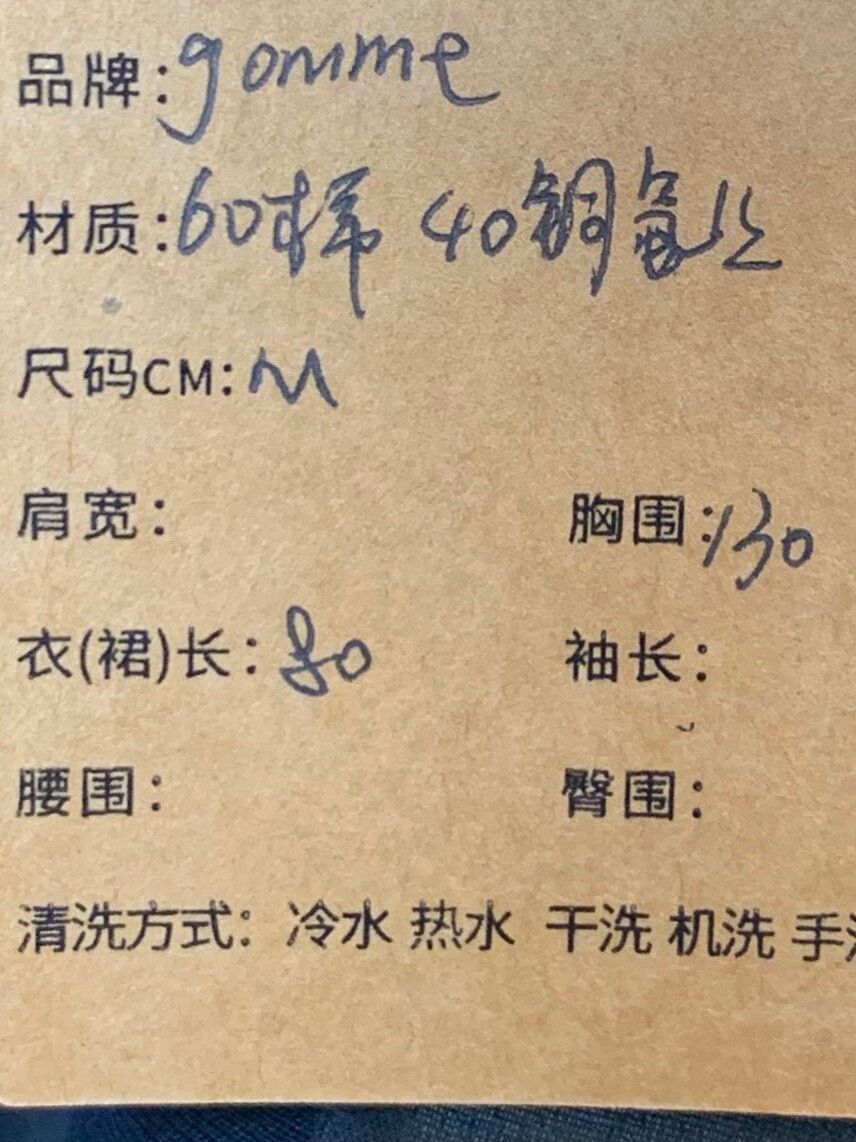 品牌:gomme
材质:60棉 40铜氨丝
尺码CM:M
肩宽: 胸围:130
衣(裙)长:80 袖长:
腰围: 臀围:
清洗方式: 冷水 热水 干洗 机洗 手